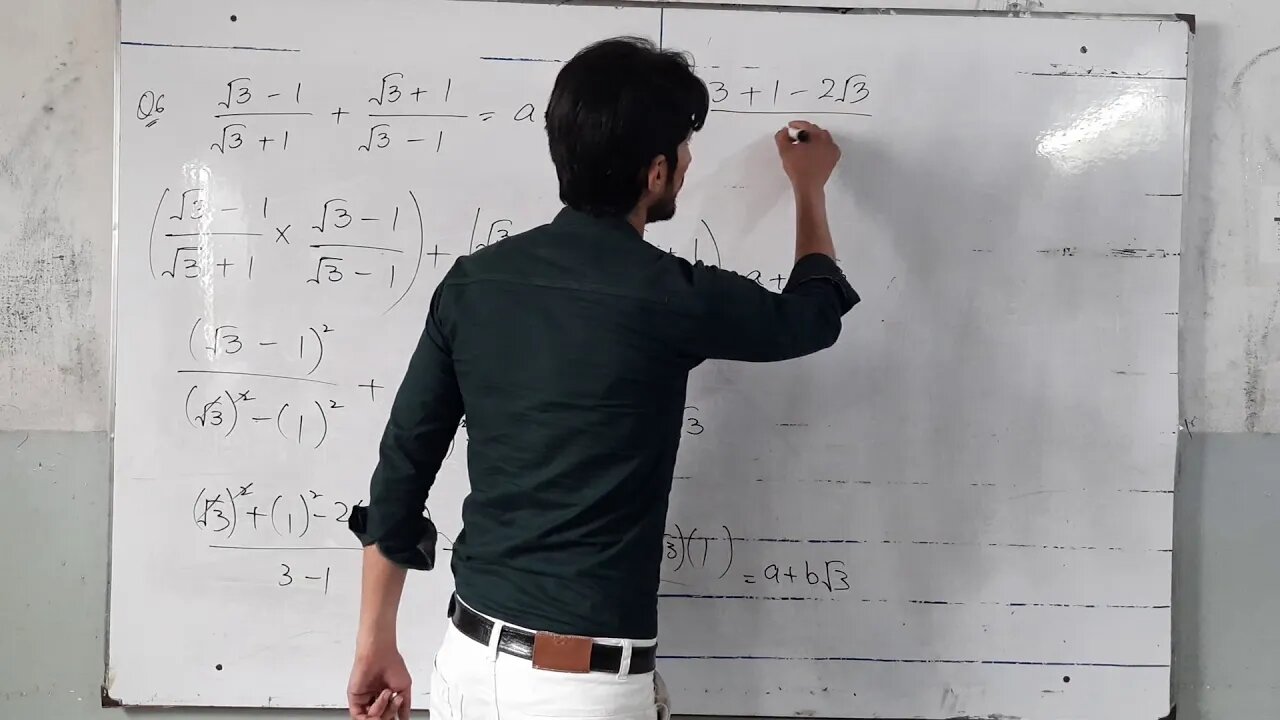 Q6 (√3 - 1)/(√3 + 1) + (√3 + 1)/(√3 - 1) = a
((√3 - 1)/(√3 + 1) × (√3 - 1)/(√3 - 1)) + (√3 1) a +
(√3 - 1)²/((√3)² - (1)²) + √3
((√3)² + (1)² - 2)/(3 - 1) 3)(1) = a + b√3
3 + 1 - 2√3